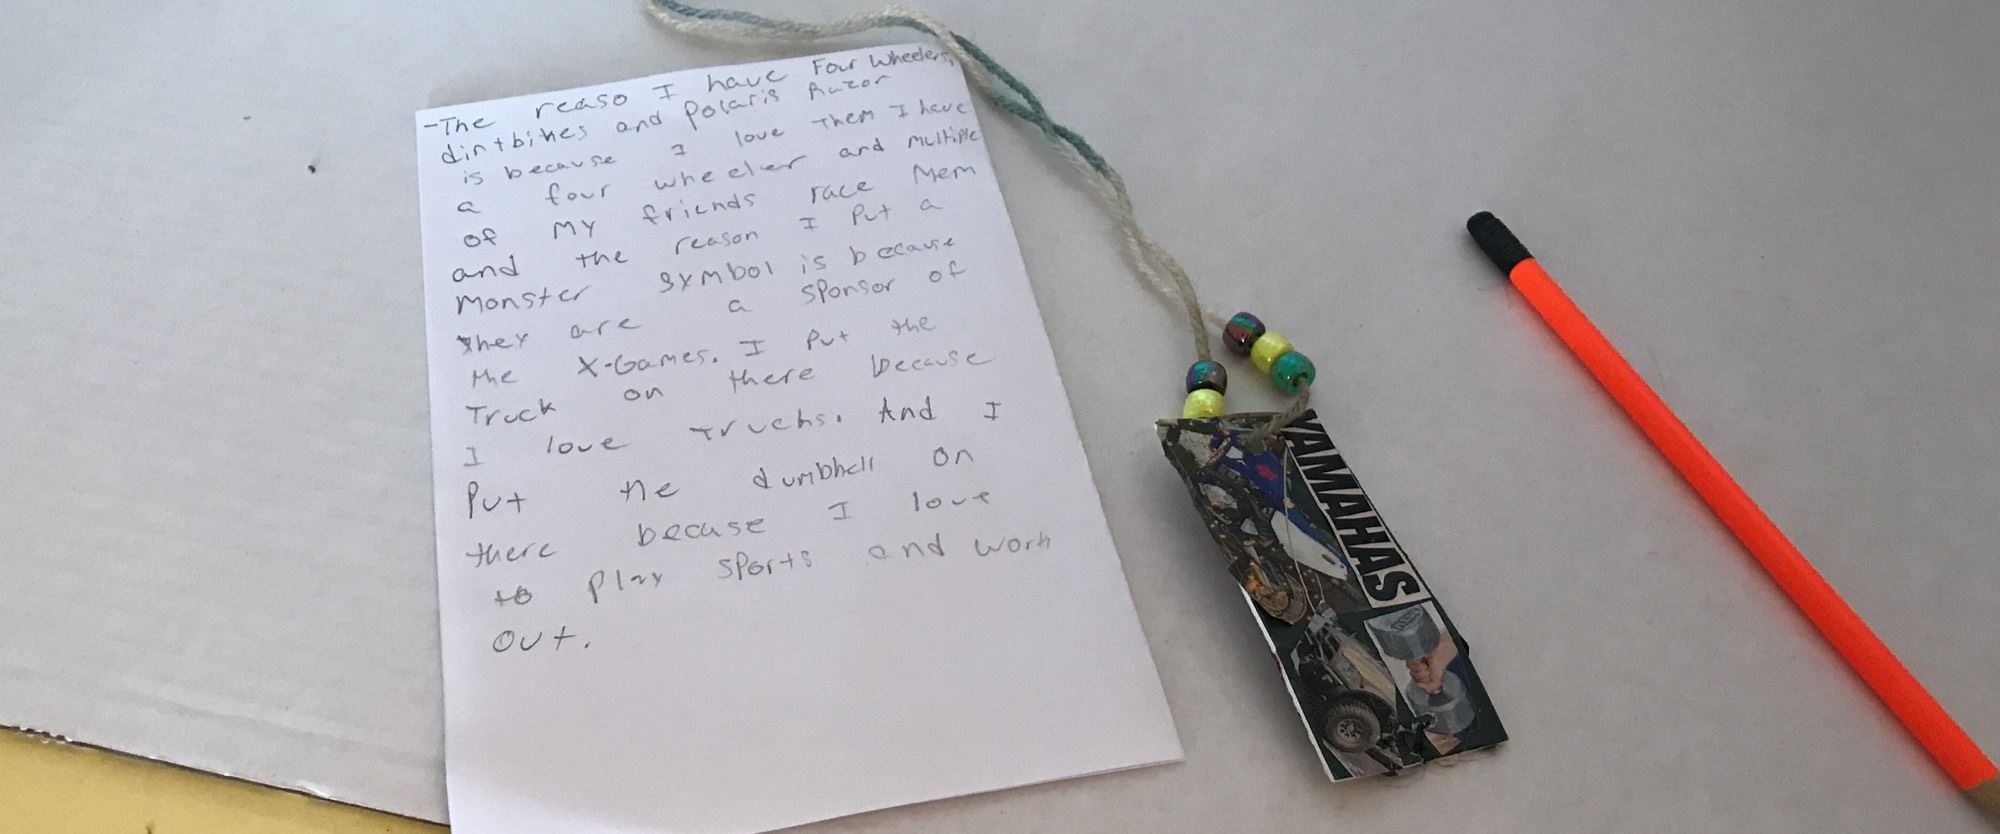 -The reaso I have Four Wheelers,
dirtbikes and Polaris Razor
is because I love Them I have
a four wheeler and multiple
of my friends race Mem
and the reason I Put a
Monster symbol is because
they are a sponsor of
the X-Games. I Put the
Truck on there because
I love Trucks. And I
Put the dumbbell on
there becuase I love
to Play sports and work
out.
YAMAHAS